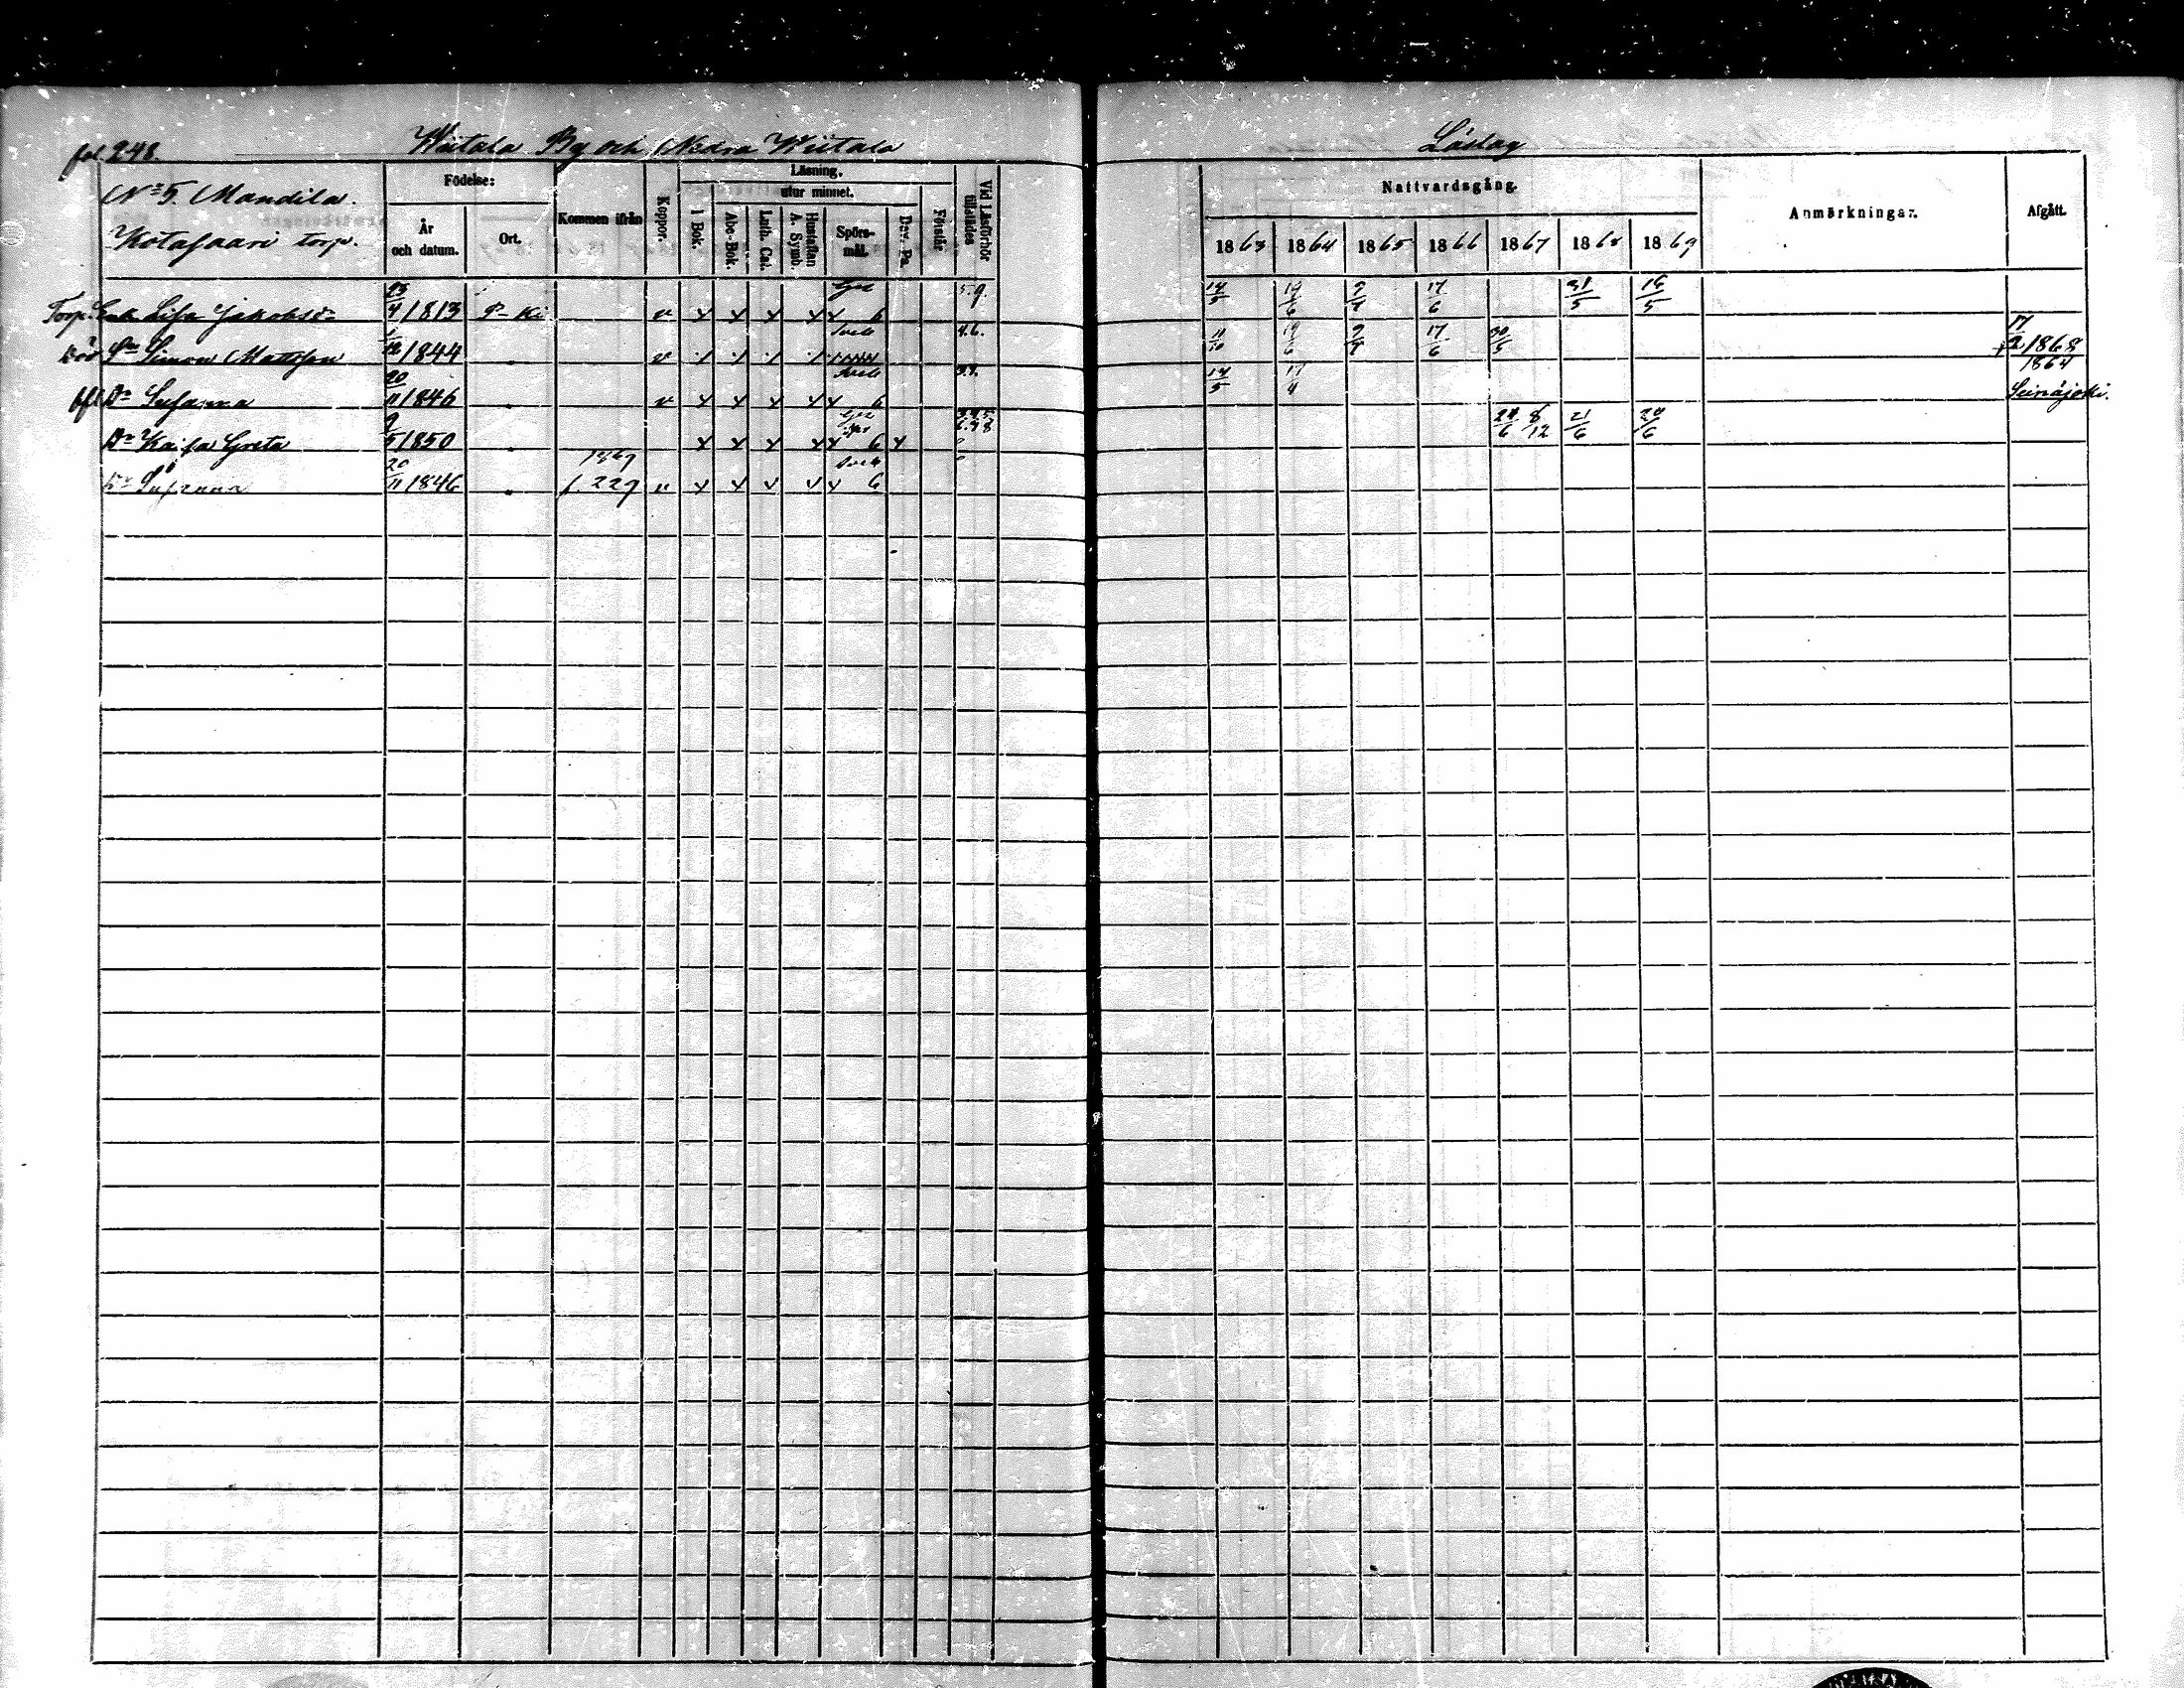 fol. 248. Wiitala By och Nedra Wiitala Läslag
No 5. Mandila.
Kotasaari torp.
Födelse:
År och datum.
Ort.
Kommen ifrån
Koppor.
Läsning,
utur minnet.
I Bok.
Abc-Bok.
Luth. Cat.
Hustaflan A. Symb.
Spörs-mål.
Dav. Ps.
Förstår
Vid Läsförhör tillstädes
Nattvardsgång.
1863 1864 1865 1866 1867 1868 1869
Anmärkningar.
Afgått.
Torp. Enk. Lisa Jakobsdr 23/4 1813 v 6 5.9. 14/5 19/6 9/7 17/6 31/5 16/5
död Sn Simon Mattsson 1844 v 4.6. 11/10 19/6 9/7 17/6 30/5 17/2 1868
Dr Susanna 20/11 1846 v 6 14/5 17/4 1864 Seinäjoki.
Dr Kaisa Greta 9/5 1850 6 24/6 8/12 21/6 24/6
Dr Susanna 20/11 1846 1869 f. 229 v 6